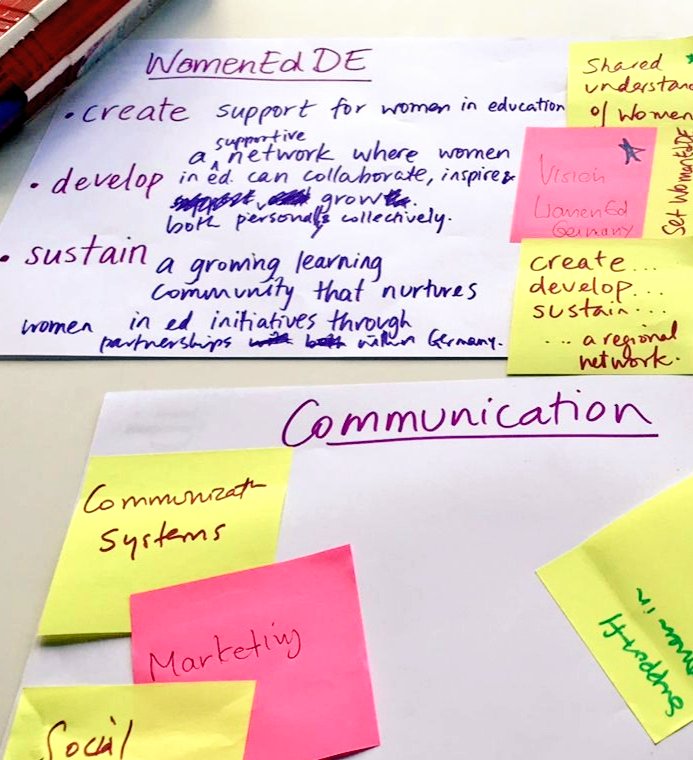 WomenEdDE
• create support for women in education
supportive
a ^ network where women
• develop in ed. can collaborate, inspire &
grow.
both personally collectively.
• sustain a growing learning
community that nurtures
women in ed initiatives through
partnerships within Germany.
Shared
understan
of Women
Vision
WomenEd
Germany
Set WomenEdDE
create...
develop...
sustain...
... a regional
network.
Communication
Communicatn
Systems
Marketing
Social
support
in